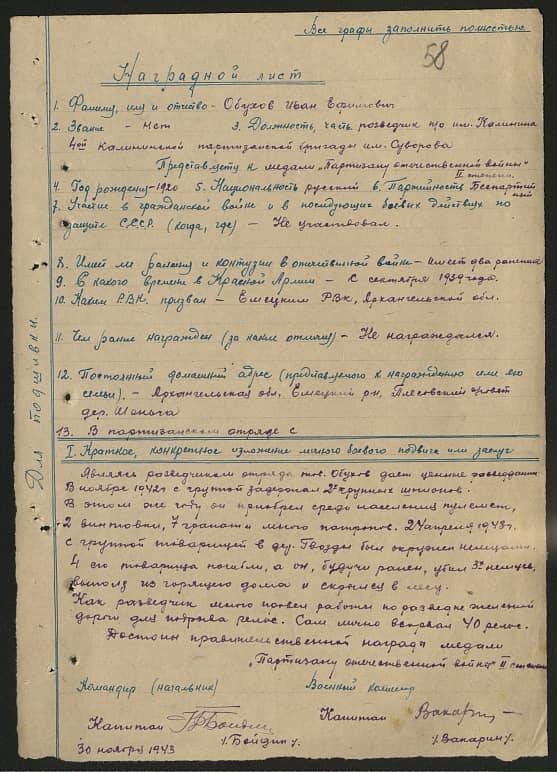 Все графы заполнить полностью
58
Наградной лист
1. Фамилия, имя и отчество - Обухов Иван Ефимович
2. Звание - Нет 3. Должность, часть разведчик п/о им. Калинина
4ой Калининской партизанской бригады им. Суворова
Представлен к медали „Партизану отечественной войны"
II степени.
4. Год рождения - 1920 5. Национальность русский 6. Партийность Беспартийный
7. Участие в гражданской войне и в последующих боевых действиях по
защите С.С.С.Р. (когда, где) - Не участвовал.
8. Имеет ли ранения и контузии в отечественной войне - имеет два ранения
9. С какого времени в Красной Армии - С сентября 1939 года.
10. Каким Р.В.К. призван - Емецким РВК, Архангельской обл.
11. Чем ранее награжден (за какие отличия) - Не награждался.
12. Постоянный домашний адрес (представляемого к награждению или его
семьи). - Архангельская обл. Емецкий рн,
дер. Шоньга
13. В партизанском отряде с
I. Краткое, конкретное изложение личного боевого подвига или заслуг
Являясь разведчиком отряда тов. Обухов дает ценные разведданные
В ноябре 1942 г с группой задержал 2х крупных шпионов.
В этом же году он приобрел среди населения пулемет,
2 винтовки, 7 гранат и много патронов. 24 апреля 1943 г.
с группой товарищей в дер. Гвозды был окружен немцами.
4 его товарища погибли, а он, будучи ранен, убил 3х немцев,
выполз из горящего дома и скрылся в лесу.
Как разведчик много провел работы по разведке железной
дороги для подрыва рельс. Сам лично взорвал 40 рельс.
Достоин правительственной награды медали
„Партизану отечественной войны" II степени
Командир (начальник) Военный комиссар
Капитан Капитан Вакарин
/Бойдин/. /Вакарин/.
30 ноября 1943
Для подшивки.